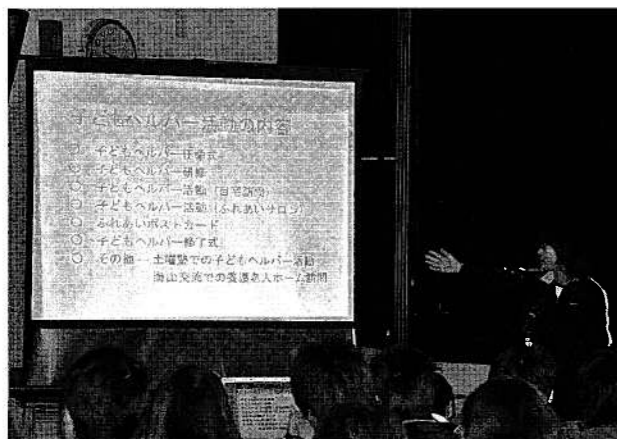 子どもヘルパー活動の内容
○ 子どもヘルパー任命式
○ 子どもヘルパー研修
○ 子どもヘルパー活動(自宅訪問)
○ 子どもヘルパー活動(ふれあいサロン)
○ ふれあいポストカード
○ 子どもヘルパー修了式
○ その他 土曜塾での子どもヘルパー活動
海山交流での養護老人ホーム訪問